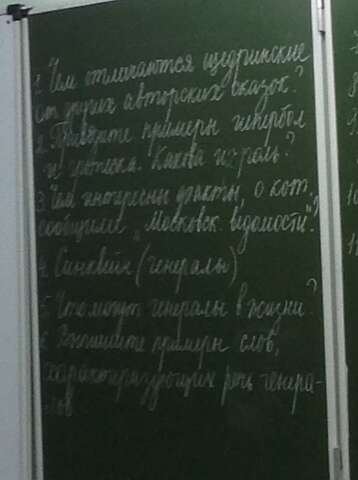 1. Чем отличаются щедринские
от других авторских сказок?
2. Приведите примеры гипербол
и гротеска. Какова их роль?
3. Чем интересны факты, о кот.
сообщили „Московск. ведомости"?
4. Синквейн (генералы)
5. Что могут генералы в жизни?
6. Запишите примеры слов,
характеризующих речь генера-
лов